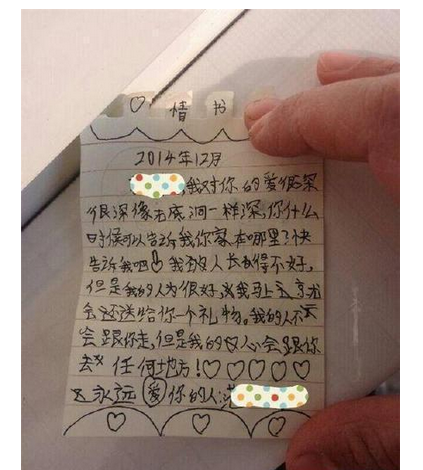 ♡ 情 书
2014年12月
我对你的爱很深
很深像无底洞一样深,你什么
时候可以告诉我你家在哪里?快
告诉我吧!我 人长得不好,
但是我的人为很好,我马上
会还送给你一个礼物。我的人不
会跟你走,但是我的 心会跟你
去 任何地方!♡♡♡♡♡
永远爱你的人: